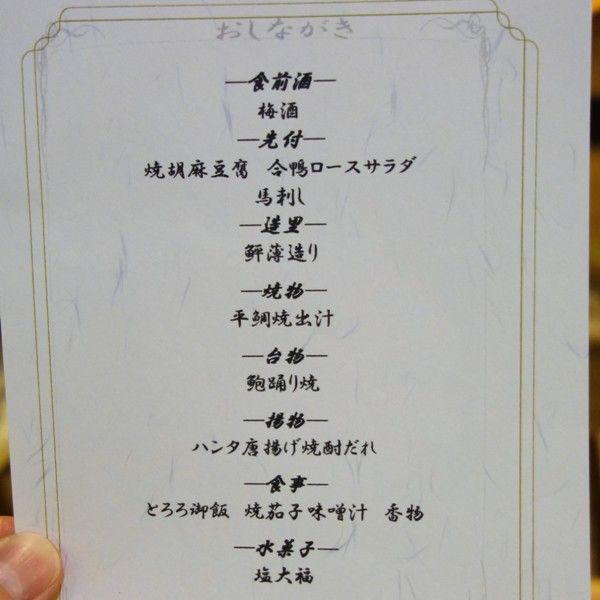 おしながき
―食前酒―
梅酒
―先付―
焼胡麻豆腐　合鴨ロースサラダ
馬刺し
―造里―
鮃薄造り
―焼物―
平鯛焼出汁
―台物―
鮑踊り焼
―揚物―
ハンタ唐揚げ焼酎だれ
―食事―
とろろ御飯　焼茄子味噌汁　香物
―水菓子―
塩大福